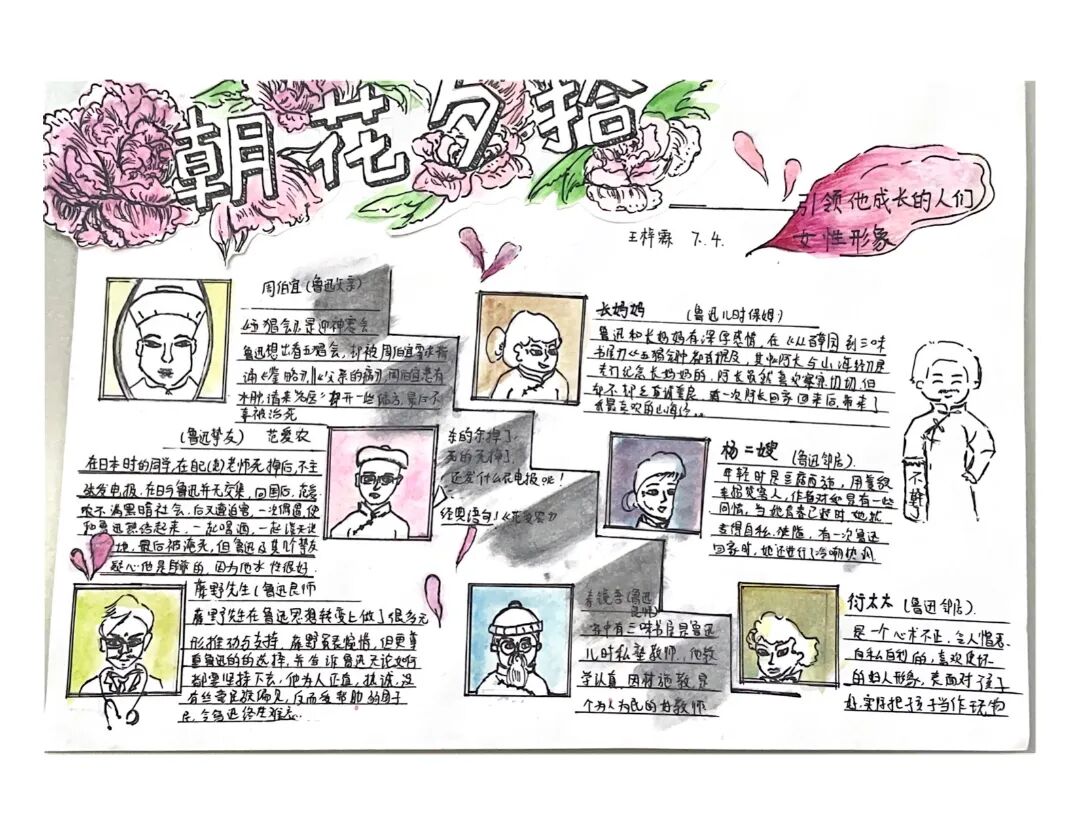 朝花夕拾
引领他成长的人们
女性形象
王梓霖 7.4.
周伯宜(鲁迅父亲)
《五猖会》是迎神赛会
鲁迅想出看五猖会,却被周伯宜要求背
诵《鉴略》,《父亲的病》周伯宜患有
水肿,请来名医,却开一些偏方,最后不
幸被治死
长妈妈 (鲁迅儿时保姆)
鲁迅和长妈妈有深厚感情,在《从百草园到三味
书屋》《五猖会》中都有提及,其中《阿长与山海经》是
来纪念长妈妈的,阿长虽然喜欢察察切切,但
却不却乏真诚善良,有一次阿长回家回来后,带来了
我最喜欢的山海经...
(鲁迅挚友) 范爱农
在日本时的同学,在自己(范)老师死掉后,不主
张发电报,在日与鲁迅并无交集,回国后,范爱
农不满黑暗社会,后又遭迫害,一次偶遇,便
和鲁迅熟络起来,一起喝酒,一起谈天说
地,最后被淹死,但鲁迅及其几个挚友
疑心他是自杀的,因为他水性很好.
杀的杀掉了,
死的死掉了,
还发什么屁电报呢!
经典语句!《范爱农》
杨二嫂 (鲁迅邻居).
年轻时是豆腐西施,用美貌
来招揽客人,作者对她是有一些
同情,
变得自私、狭隘,有一次鲁迅
回家时,她还进行了冷嘲热讽
不幹了
藤野先生(鲁迅良师
藤野先生在鲁迅思想转变上做了很多无
形推动与支持,藤野虽惋惜,但更尊
重鲁迅的的选择,并告诉鲁迅无论如何
都要坚持下去,他为人正直,热诚,没
有丝毫民族偏见,反而受帮助的
令鲁迅终生难忘.
寿镜吾(鲁迅
良师)
书中有三味书屋是鲁迅
儿时私塾教师,他教
学认真,因材施教是
个为人为民的好教师
衍太太 (鲁迅邻居).
是一个心术不正,令人憎恶.
自私自利的,喜欢使坏
的妇人形象,表面对孩子
好,实际把孩子当作玩物